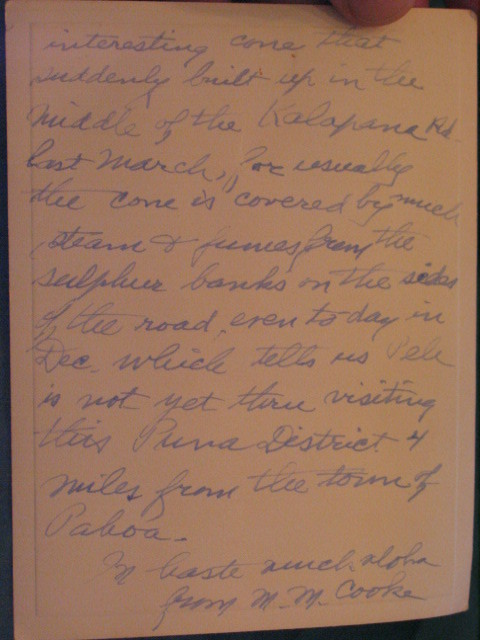 interesting cone that
suddenly built up in the
middle of the Kalapana Rd.
last March, for usually
the cone is covered by much
steam & fumes from the
sulphur banks on the sides
of the road, even to-day in
Dec. which tells us Pele
is not yet thru visiting
this Puna District 4
miles from the town of
Pahoa.
In haste much aloha
from M. M. Cooke